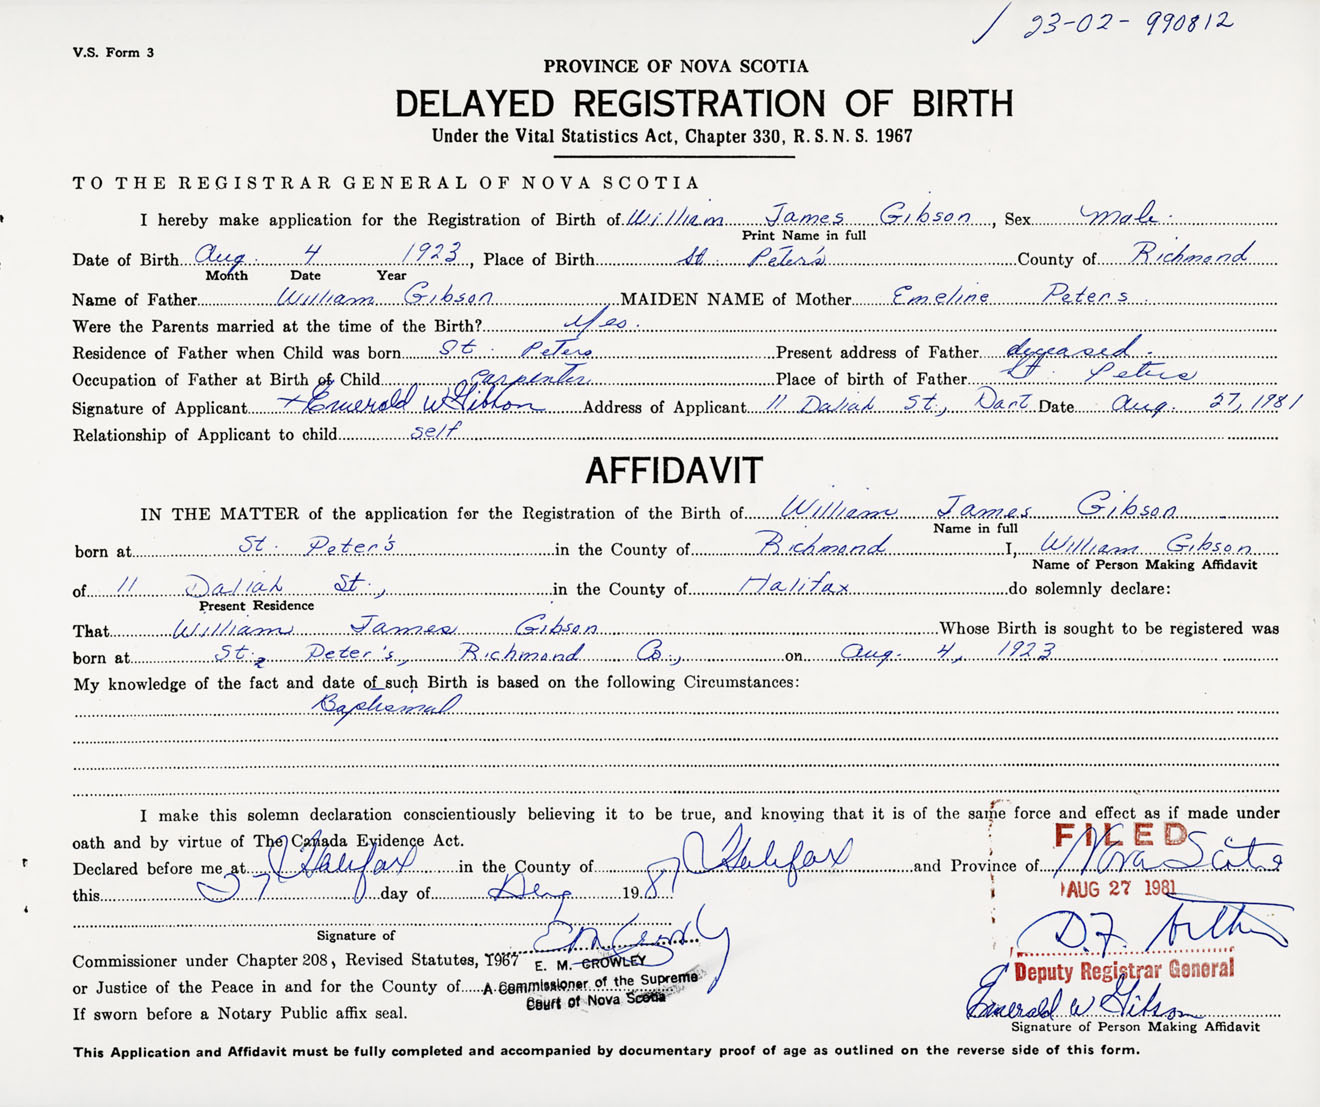 23-02-990812
V.S. Form 3
PROVINCE OF NOVA SCOTIA
DELAYED REGISTRATION OF BIRTH
Under the Vital Statistics Act, Chapter 330, R. S. N. S. 1967
TO THE REGISTRAR GENERAL OF NOVA SCOTIA
I hereby make application for the Registration of Birth of William James Gibson, Sex Male.
Print Name in full
Date of Birth Aug. 4 1923, Place of Birth St. Peter's County of Richmond
Month Date Year
Name of Father William Gibson MAIDEN NAME of Mother Emeline Peters
Were the Parents married at the time of the Birth? Yes.
Residence of Father when Child was born St. Peters Present address of Father deceased.
Occupation of Father at Birth of Child Carpenter Place of birth of Father St. Peters
Signature of Applicant Emerald W Gibson Address of Applicant 11 Daliah St., Dart Date Aug. 27, 1981
Relationship of Applicant to child self
AFFIDAVIT
IN THE MATTER of the application for the Registration of the Birth of William James Gibson
Name in full
born at St. Peter's in the County of Richmond I, William Gibson
Name of Person Making Affidavit
of 11 Daliah St., in the County of Halifax do solemnly declare:
Present Residence
That William James Gibson Whose Birth is sought to be registered was
born at St. Peter's, Richmond Co., on Aug. 4, 1923
My knowledge of the fact and date of such Birth is based on the following Circumstances:
Baptismal
I make this solemn declaration conscientiously believing it to be true, and knowing that it is of the same force and effect as if made under
oath and by virtue of The Canada Evidence Act.
FILED
Declared before me at Halifax in the County of Halifax and Province of Nova Scotia
this 27 day of Aug 1981
AUG 27 1981
Signature of
Commissioner under Chapter 208, Revised Statutes, 1967 E. M. CROWLEY
Deputy Registrar General
or Justice of the Peace in and for the County of A Commissioner of the Supreme
Court of Nova Scotia
If sworn before a Notary Public affix seal.
Emerald W Gibson
Signature of Person Making Affidavit
This Application and Affidavit must be fully completed and accompanied by documentary proof of age as outlined on the reverse side of this form.